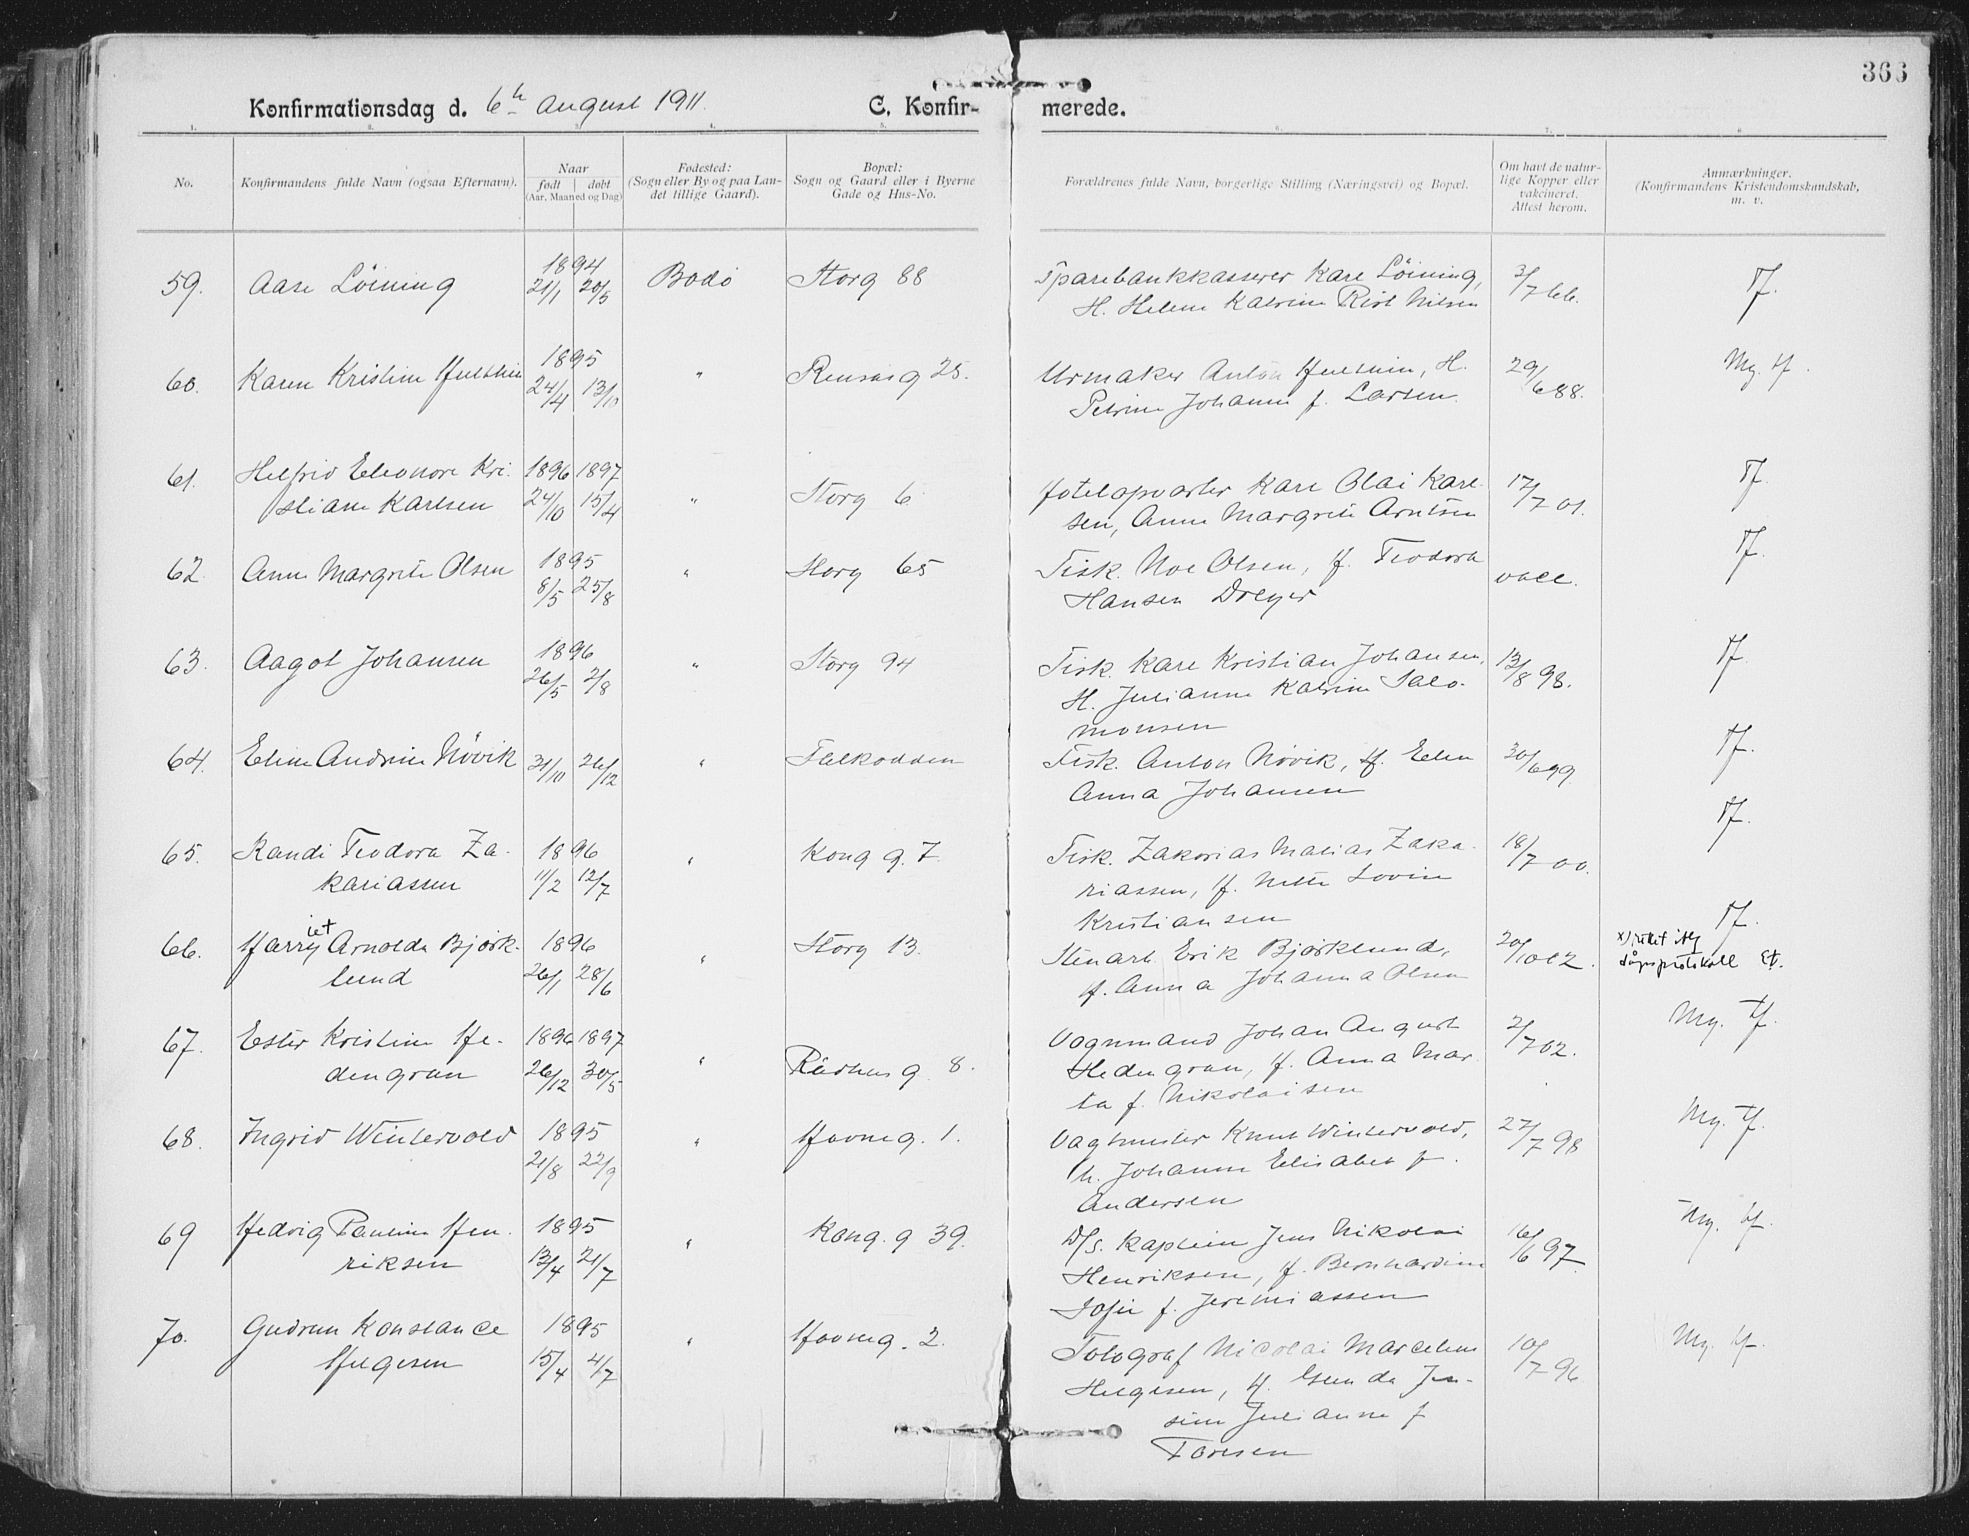 366
Konfirmationsdag d. 6te august 1911. C. Konfir- merede.
1. 2. 3. 4. 5. 6. 7. 8
No. Konfirmandens fulde Navn (ogsaa Efternavn).
Naar
født døbt
(Aar, Maaned og Dag)
Fødested:
(Sogn eller By og paa Lan-
det tillige Gaard).
Bopæl:
Sogn og Gaard eller i Byerne
Gade og Hus-No.
Forældrenes fulde Navn, borgerlige Stilling (Næringsvei) og Bopæl.
Om havt de natur-
lige Kopper eller
vakcineret.
Attest herom.
Anmærkninger.
(Konfirmandens Kristendomskundskab,
m. v.
1894
59. Aase Löining 21/1 20/5 Bodö Storg 88 Sparebankkasserer Karl Löining, 3/7 66. Tf.
H. Helene Katrine Rist Nilsen
1895
60. Karen Kristine Hulthin 24/4 13/10 " Rensåsg 25. Urmaker Anton Hulthin, H. 29/6 88. Mg. tf.
Petrine Johanne f. Larsen.
61. Helfrid Eleonore Kri- 1896 1897
stiane Karlsen 24/10 15/4 " Storg 6 Hotelopvarter Karl Olai Karl- 17/7 01. Tf.
sen, Anne Margrete Arntsen
1895
62. Anne Margrete Olsen 8/5 25/8 " Storg 65 Fisk. Noe Olsen, H. Teodora vacc. Tf.
Hansen Dreyer
1896
63. Aagot Johansen 26/5 2/8 " Storg 94 Fisk. Karl Kristian Johansen, 13/8 98. Tf.
H. Julianne Katrine Salo-
monsen
64. Eline Andrine Növik 31/10 26/12 " Falkodden Fisk. Anton Növik, H. Elen 30/6 99 Tf.
Anna Johansen
65. Randi Teodora Za- 1896 " Kong g. 7 Fisk. Zakarias Matias Zaka- 18/7 00. Tf.
kariassen 11/2 12/7 riassen, H. Nette Lovine
Kristiansen
iet
66. Harry Arnolda Björk- 1896 " Storg 13. Stenarb. Erik Björklund, 20/10 02. Tf.
lund 26/1 28/6 H. Anna Johanna Olsen
x) rettet
dåpsprotokoll
67. Ester Kristine He- 1896 1897 " Rådhusg 8. Vognmand Johan August 2/7 02. Mg. Tf.
dengran 26/12 30/5 Hedengran, H. Anna Mar-
ta f. Nikolaisen
68. Ingrid Wintervold 1895 " Havneg. 1. Vagtmester Knut Wintervold, 27/7 98 Mg. Tf.
21/8 22/9 h. Johanne Elisabet f.
Andersen
69 Hedvig Pauline Hen- 1895 " Kong. g 39. D/s. kaptein Jens Nikolai 16/6 97. Mg. tf.
riksen 13/4 21/7 Henriksen, H. Bernhardine
Sofie f. Jeremiassen
70. Gudrun Konstance 1895 " Havneg. 2. Fotograf Nicolai Marcelius 10/7 96 Mg. tf.
Helgesen 15/4 4/7 Helgesen, H. Gunda Jen-
sine Julianne f
Toresen